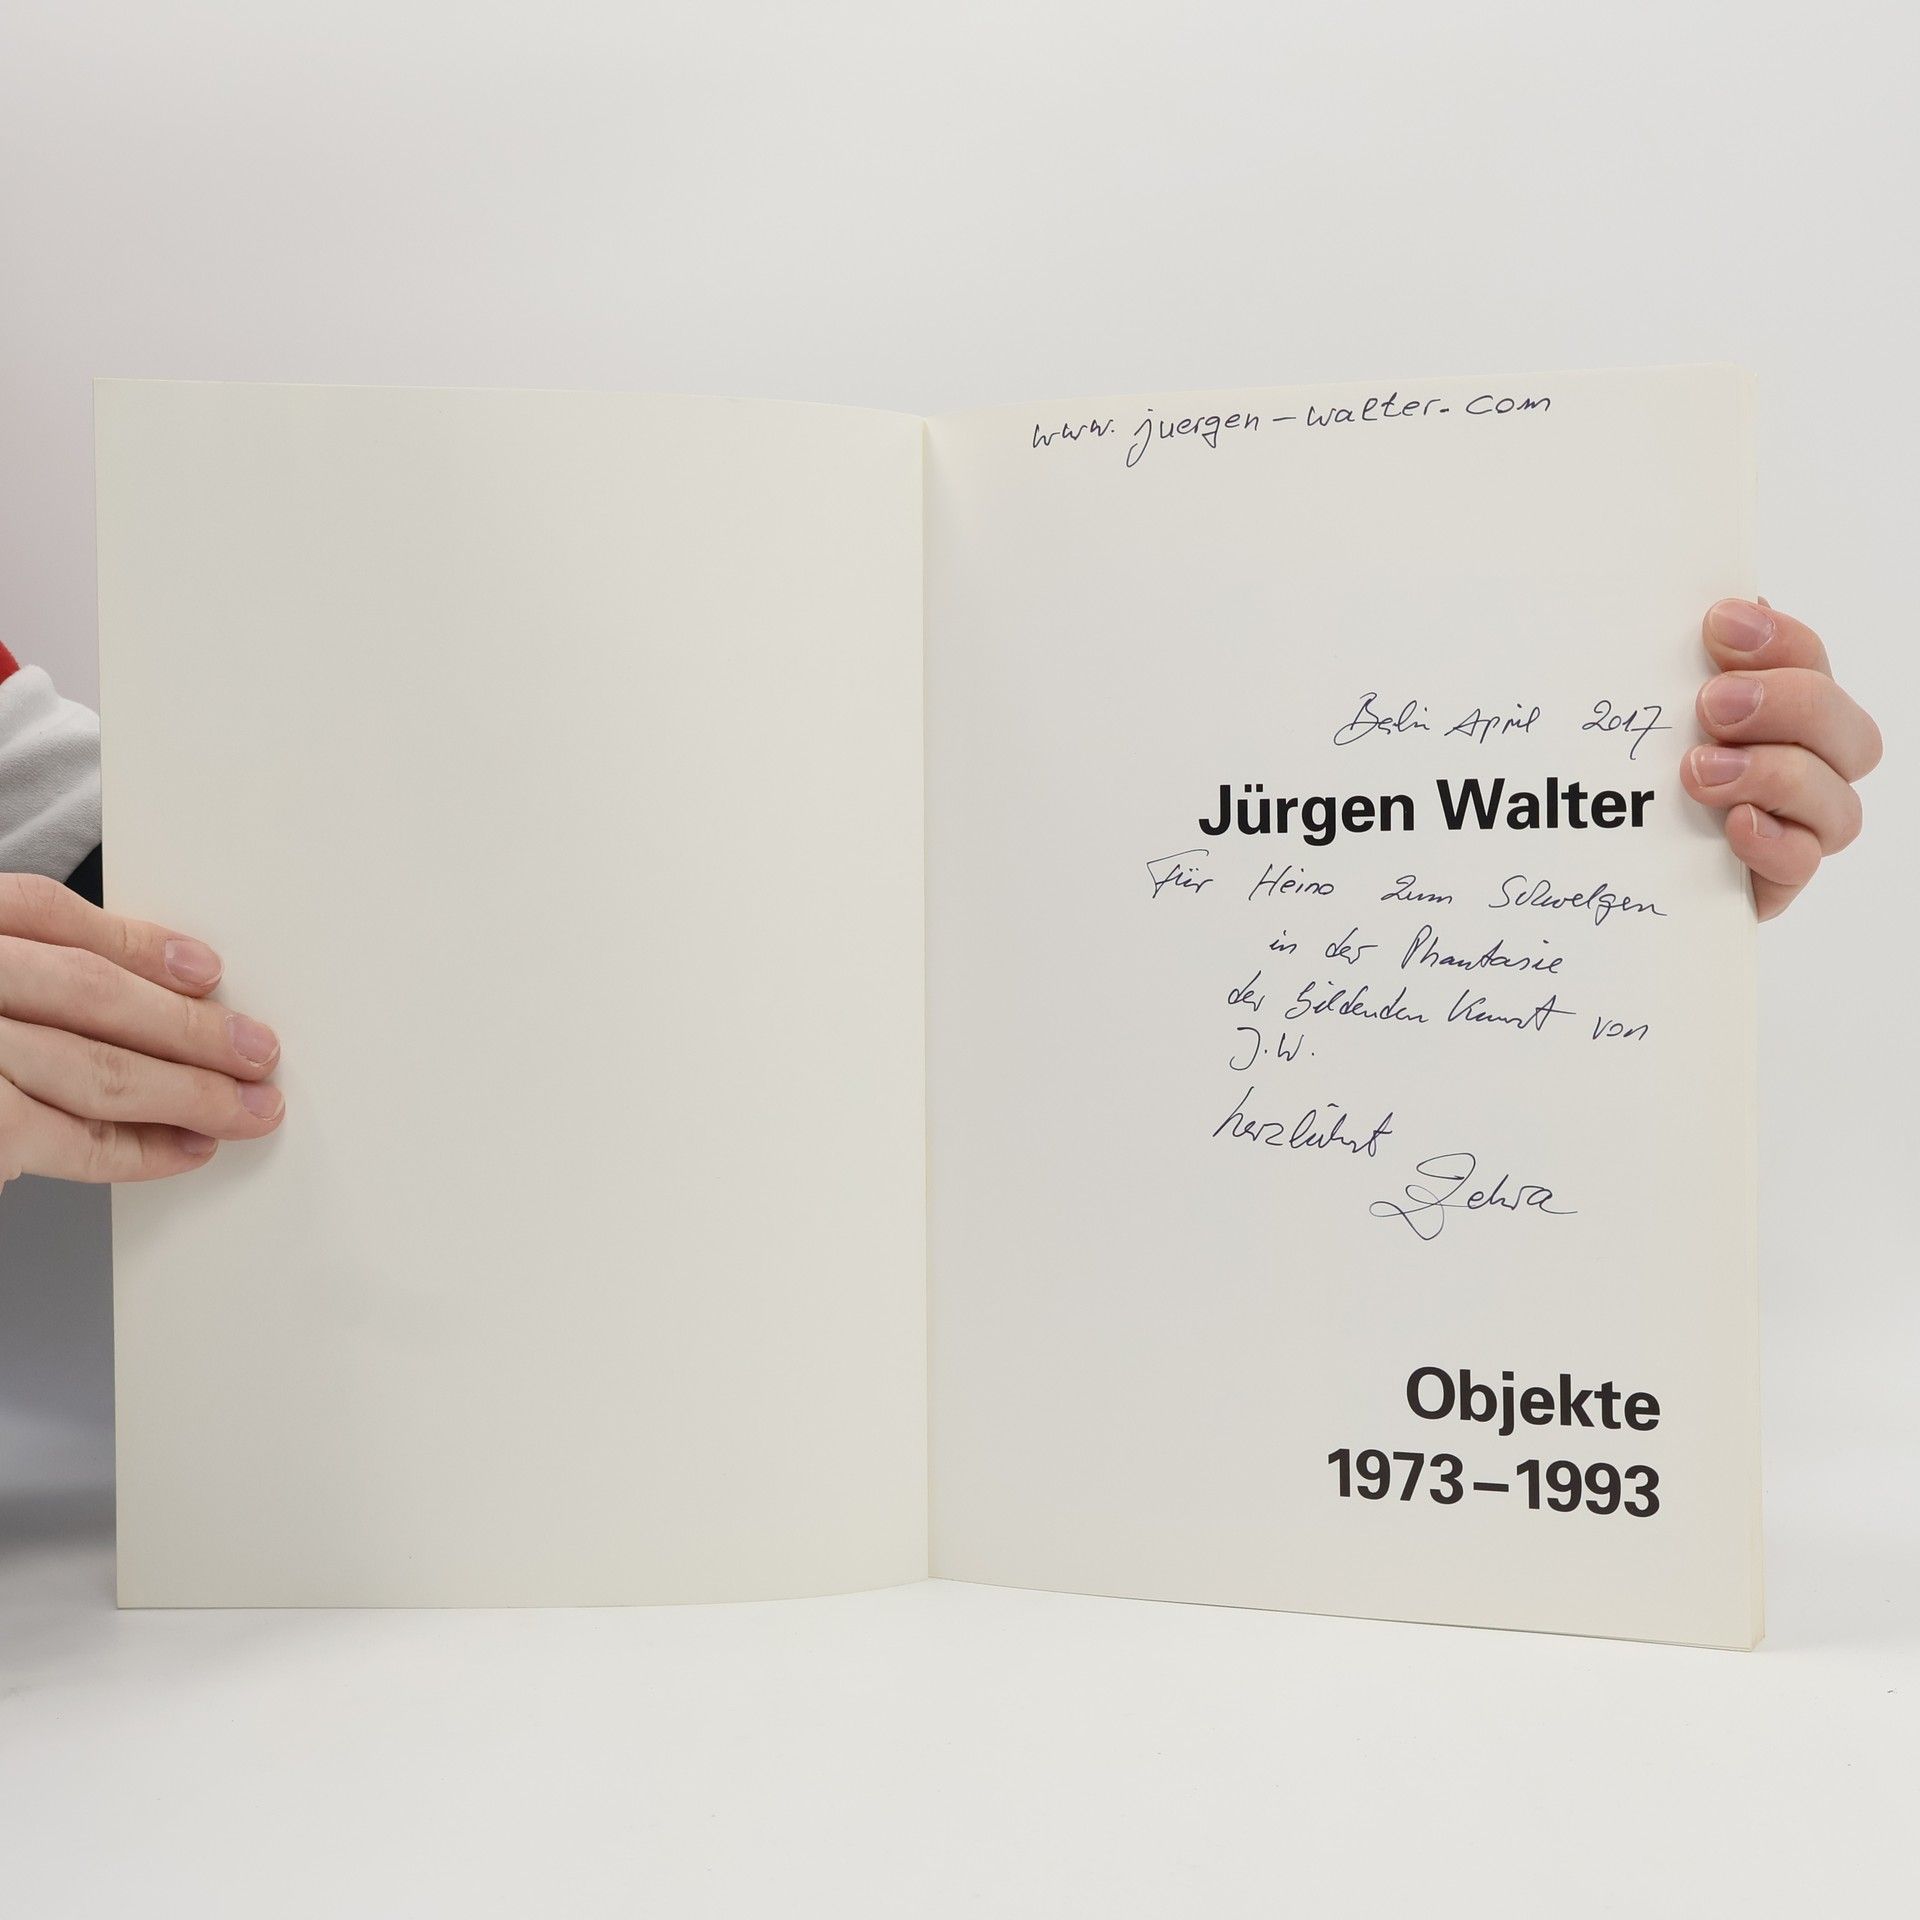 www.juergen-walter.com
Berlin April 2017
Jürgen Walter
Für Heino zum Schwelgen
in der Phantasie
der bildenden Kunst von
J.W.
herzlichst
Objekte
1973–1993